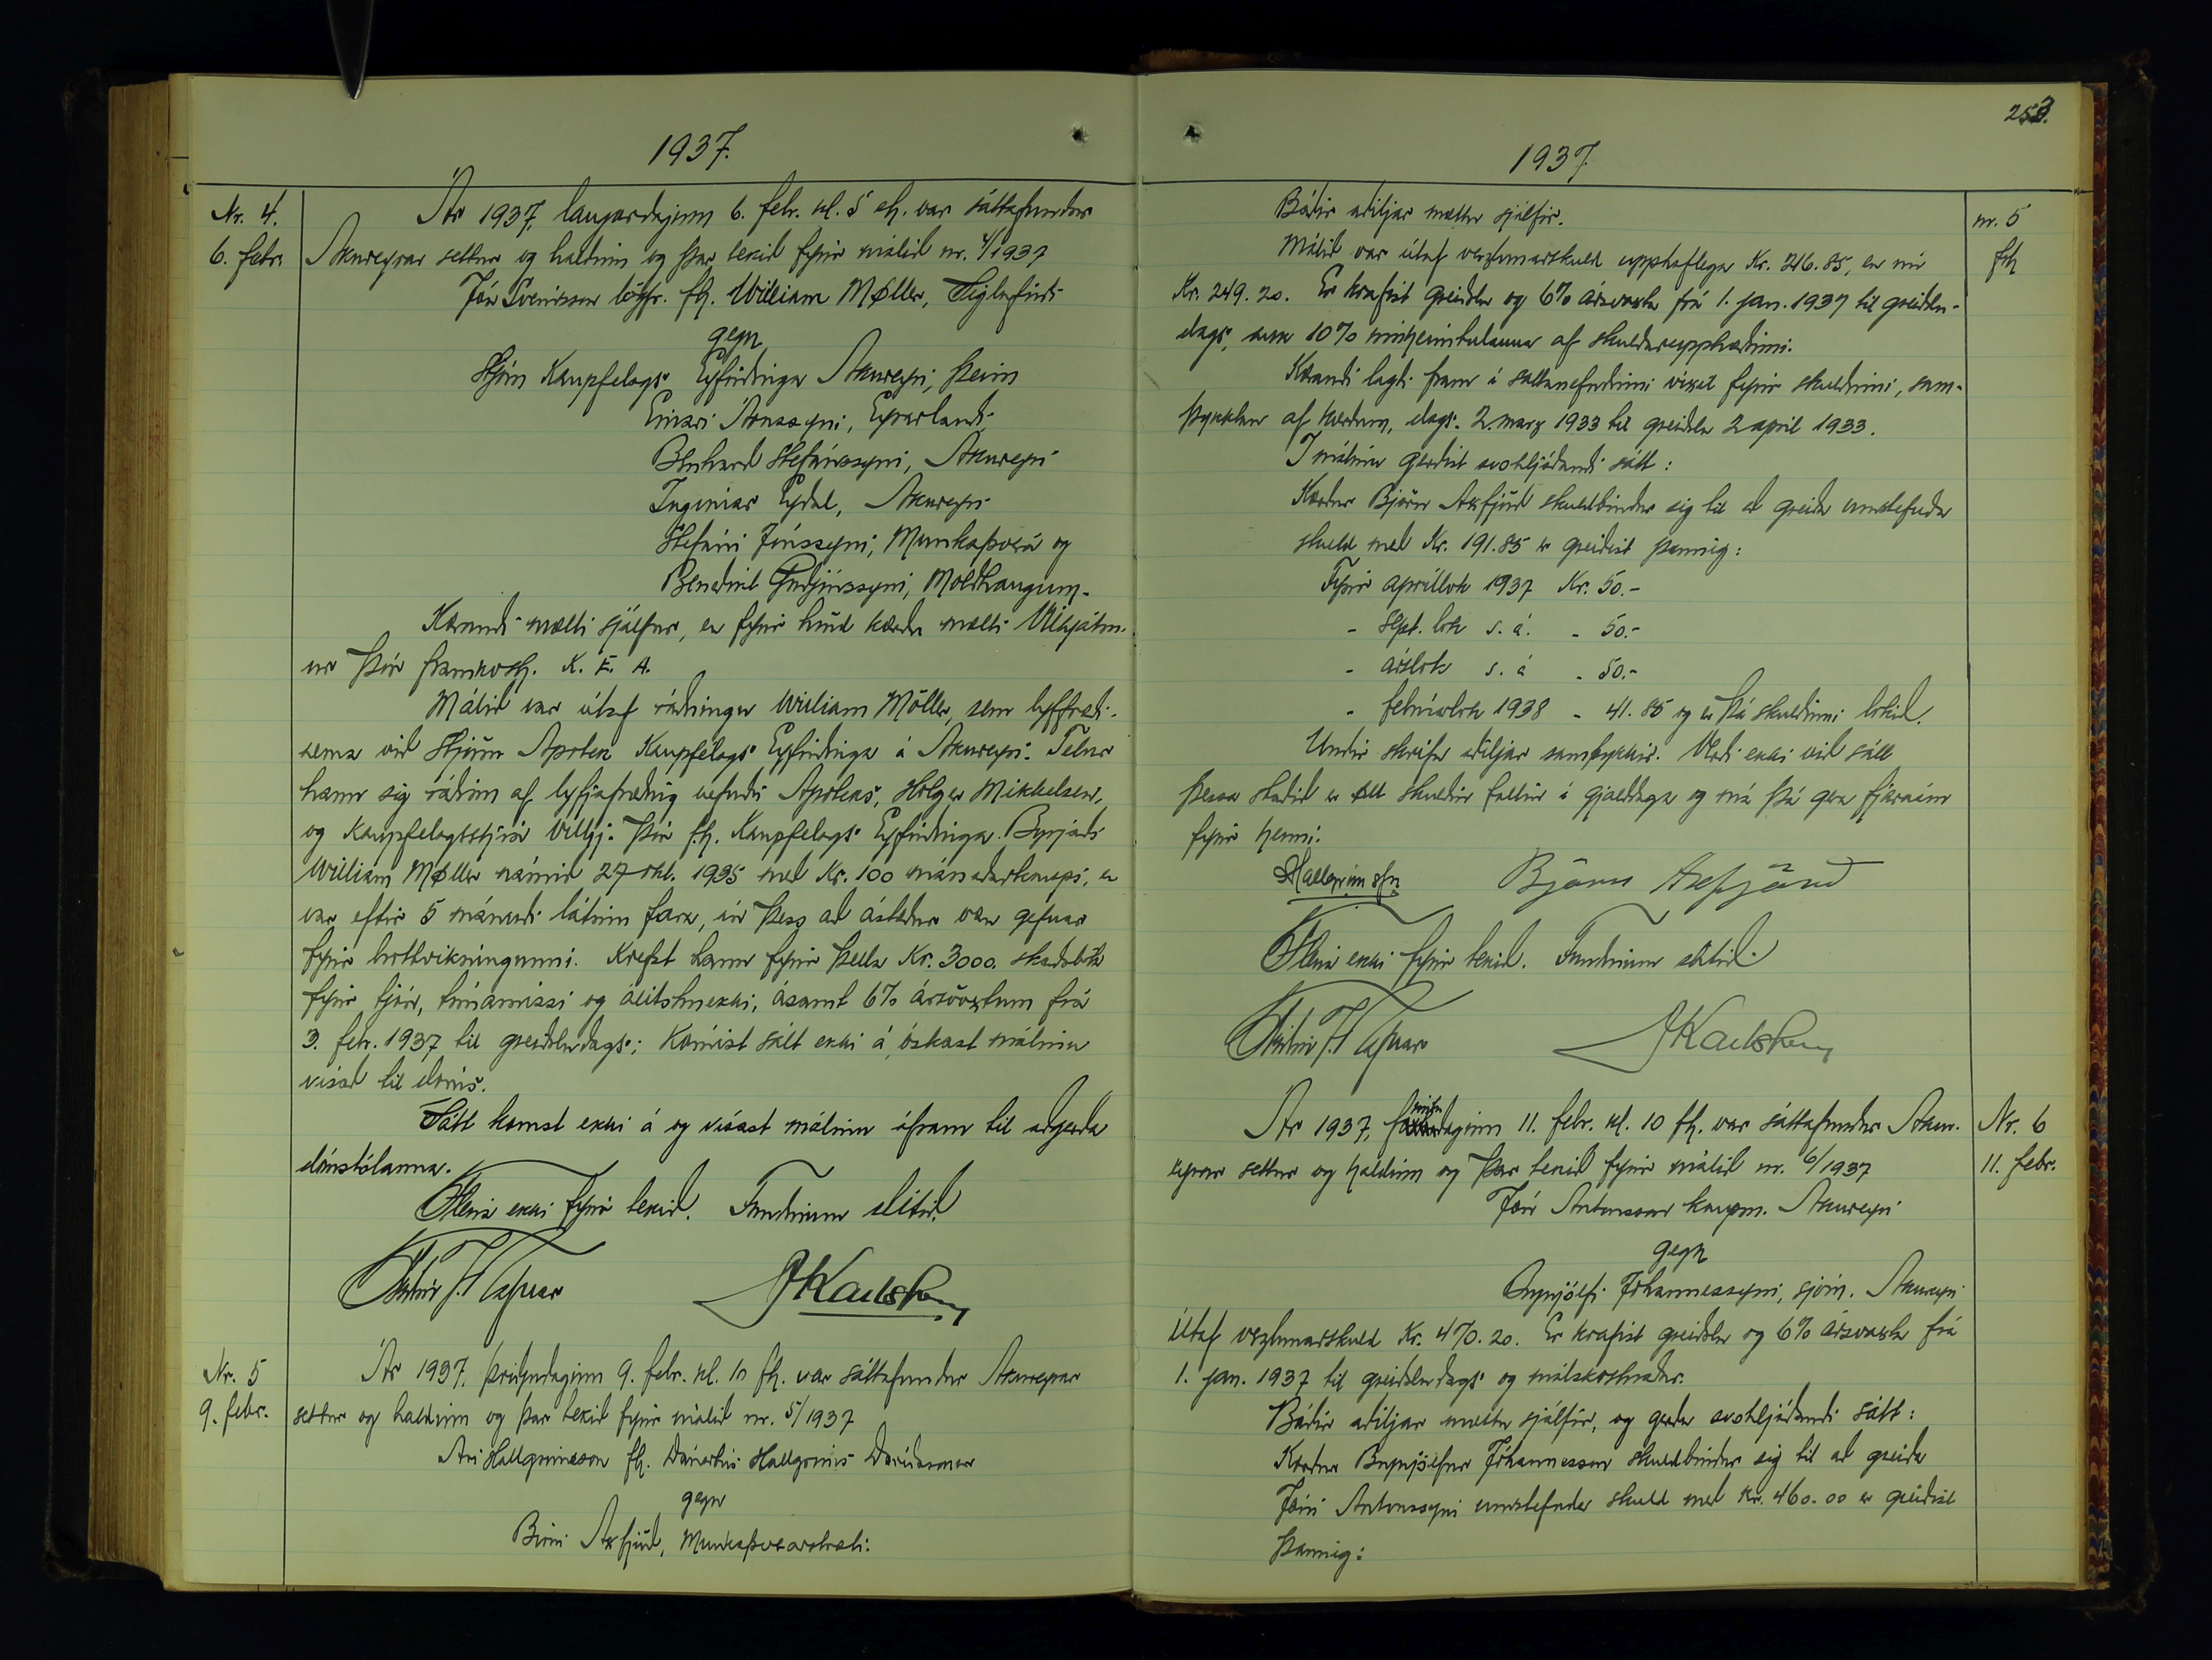 1937.
Nr. 4.
6. febr.
Ár 1937, laugardaginn 6. febr. kl. 5 eh. var sáttafundur
Akureyrar settur og haldinn og þar tekið fyrir málið nr. 4/1937
Jón Sveinsson lögfr. fh. William Møller, Siglufirði
gegn
Stjórn Kaupfelags Eyfirðinga Akureyri, þeim
Einari Árnasyni, Eyrarlandi,
Bernhard Stefánssyni, Akureyri
Ingimar Eydal, Akureyri
Stefáni Jónssyni, Munkaþverá og
Benedikt Guðjónssyni, Moldhaugum.
Kærandi mætti sjálfur, en fyrir hönd kærða mætti Vilhjálm-
ur Þór framkvstj. K. E. A.
Málið var útaf ráðningu William Möller, sem lyffræði-
nema við Stjörnu Apotek Kaupfélags Eyfirðinga á Akureyri. Telur
hann sig ráðinn af lyfjafræðing nefnds Apoteks, Holger Mikkelsen,
og Kaupfelagsstjóra Vilhj. Þór f.h. Kaupfelags Eyfirðinga. Byrjaði
William Møller námið 27. okt. 1935 með Kr. 100 mánaðarkaupi, en
var eftir 5 mánuði látinn fara, án þess að ástæður væru gefnar
fyrir brottvikningunni. Krefst hann fyrir þetta Kr. 3000. skaðabóta
fyrir tjón, tímamissi og álitshnekki, ásamt 6% ársvöxtum frá
3. febr. 1937 til greiðsludags; komist sátt ekki á, óskast málinu
vísað til dóms.
Sátt komst ekki á og vísast málinu áfram til aðgerða
dómstólanna.
Fleira ekki fyrir tekið. Fundinum slitið.
Nr. 5
9. febr.
Ár 1937, þriðjudaginn 9. febr. kl. 10 fh. var sáttafundur Akureyrar
settur og haldinn og þar tekið fyrir málið nr. 5/1937
Ari Hallgrímsson fh. Dánarbús Hallgríms Davíðssonar
gegn
Birni Axfjörð, Munkaþverárstræti.
253.
1937.
nr. 5
frh
Báðir aðiljar mættu sjálfir.
Málið var útaf verzlunarskuld upphaflega Kr. 216.85, en nú
Kr. 249.20. Er krafist greiðslu og 6% ársvaxta frá 1. jan. 1937 til greiðslu-
dags, auk 10% innheimtulauna af skuldarupphæðinni.
Kærandi lagði fram í sáttanefndinni víxil fyrir skuldinni, sam-
þykktan af kærðum, dags. 2. marz 1933 til greiðslu 2 april 1933.
Í málinu gerðist svohljóðandi sátt:
Kærður Björn Axfjörð skuldbindur sig til að greiða umstefnda
skuld með Kr. 191.85 er greiðist þannig:
Fyrir aprillok 1937 Kr. 50.-
- Sept. lok s. á. - 50.-
- árslok s. á - 50.-
- febrúarlok 1938 - 41.85 og er þá skuldinni lokið.
Undir skrifa aðiljar samþykkir. Verði ekki við sátt
þessa staðið er öll skuldin fallin í gjalddaga og má þá gera fjárnám
fyrir henni.
Hallgrímsson Björn Axfjörð
Fleira ekki fyrir tekið. Fundinum slitið.
Nr. 6
11. febr.
Ár 1937, fimtudaginn 11. febr. kl. 10 fh. var sáttafundur Akur-
eyrar settur og haldinn og þar tekið fyrir málið nr. 6/1937
Jón Antonsson kaupm. Akureyri
gegn
Brynjólfi Jóhannessyni, sjóm. Akureyri
Útaf verzlunarskuld Kr. 470.20. Er krafist greiðslu og 6% ársvaxta frá
1. jan. 1937 til greiðsludags og málskostnaðar.
Báðir aðiljar mættu sjálfir, og gerðu svohljóðandi sátt:
Kærður Brynjólfur Jóhannesson skuldbindur sig til að greiða
Jóni Antonssyni umstefnda skuld með kr. 460.00 er greiðist
þannig: